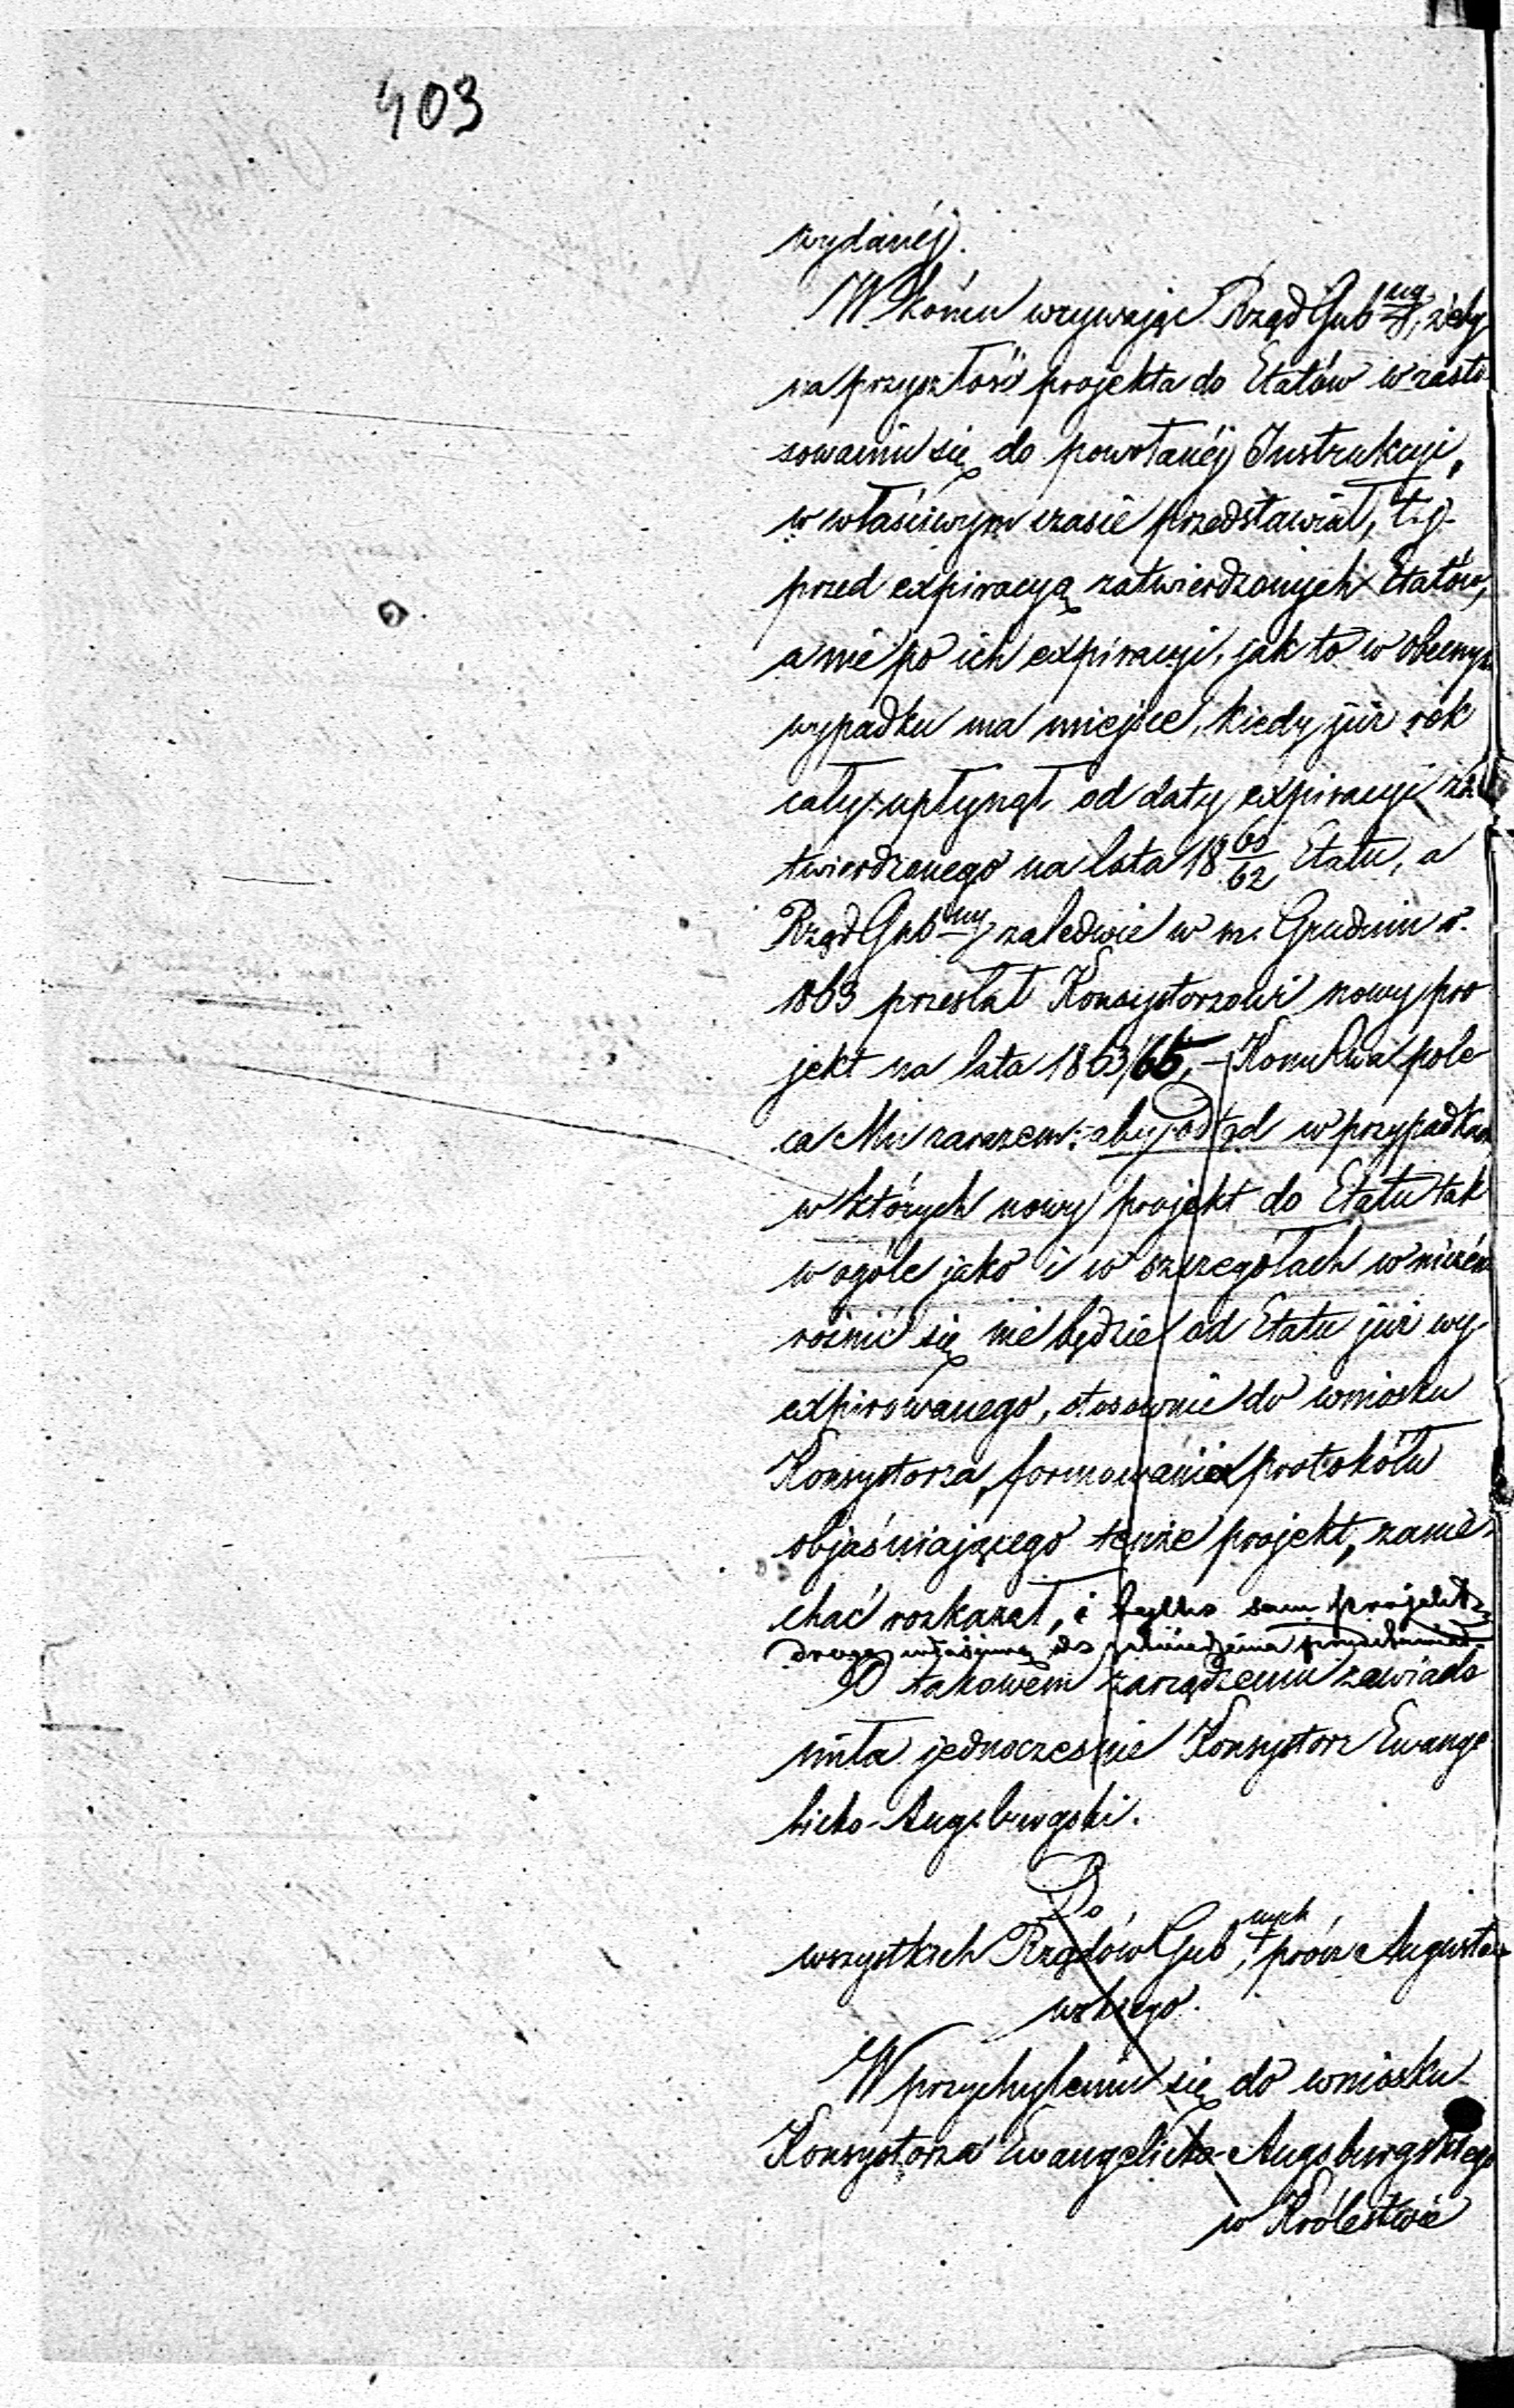 403
wydanéj.
W końcu wzywając Rząd Gub ny, żeby
na przyszłość projekta do Etatów w zasto-
sowaniu się do powołanéj Instrukcyi,
w właściwym czasie przedstawiał, t.j.
przed expiracyą zatwierdzonych Etatów,
a nie po ich expiracyi, jak to w obecnym
wypadku ma miejsce, kiedy już rok
cały upłynął od daty expiracyi za
twierdzonego na lata 18 60/62 Etatu, a
Rząd Gub ny zaledwie w m. Grudniu r.
1863 przesłał Konsystorzowi nowy pro
jekt na lata 1863/65, – pole-
ca Mu zarazem: aby odtąd w przypadkach
w których nowy projekt do Etatu tak
w ogóle jako i w szczegółach w niczém
rożnić się nie będzie od Etatu już wy-
expirowanego, stosownie do wniosku
Konsystorza, formowania protokółu
objaśniającego tenże projekt, zanie-
chać rozkazał, i tylko sam projekt
drogą właściwą do zatwierdzenia przedstawiał.
O takowém zarządzeniu zawiado
miła jednocześnie Konsystorz Ewange
licko-Augsburgski.
Do
wszystkich Rządów Gub nych, prócz Augustow
wskiego.
W przychyleniu się do wniosku
Konsystorza Ewangelicko-Augsburgskiego
w Królestwie